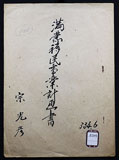 満蒙移民事業計画書
宗光彦
334.6